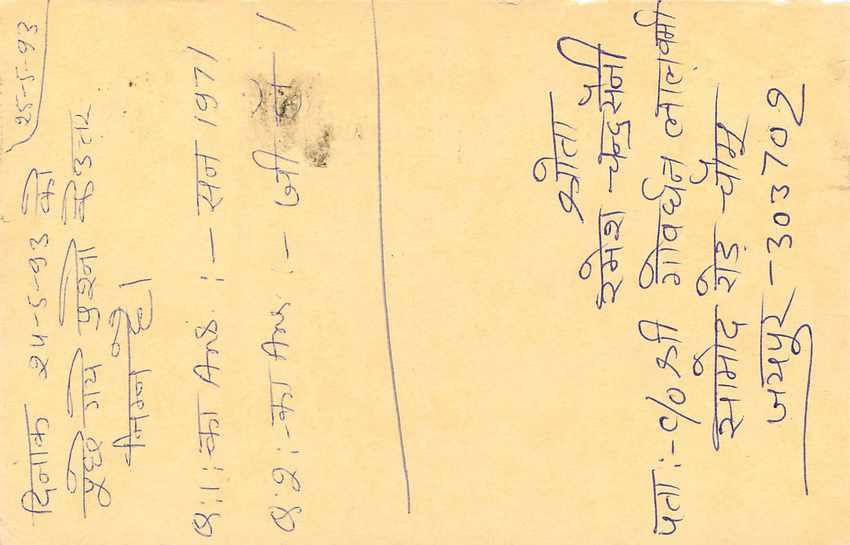 25-5-93
दिनाक २4-5-93 को
पुछे गये प्रश्नो के उत्तर
निम्न है।
Q:1: का Ans. :- सन 1971
Q:२:- का Ans :- जी न।
श्रोता
रमेश चन्द्र सैनी
पता:- c/o श्री गोवर्धन लाल वर्मा
सामोद रोड़ चौमू
जयपुर - 30370२